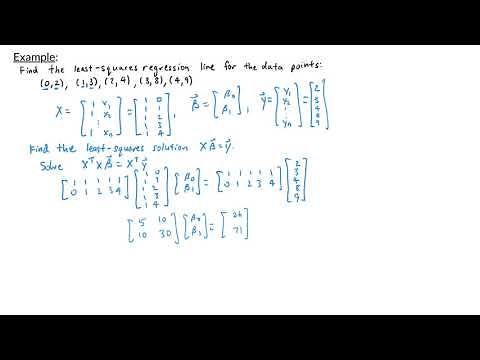 Example:
Find the least-squares regression line for the data points:
(0,2), (1,3), (2,4), (3,8), (4,9)
X = [1 x₁; 1 x₂; ⋮ ⋮; 1 xₙ] = [1 0; 1 1; 1 2; 1 3; 1 4], β⃗ = [β₀; β₁], y⃗ = [y₁; y₂; ⋮; yₙ] = [2; 3; 4; 8; 9]
Find the least-squares solution Xβ⃗ = y⃗.
Solve XᵀXβ⃗ = Xᵀy⃗
[1 1 1 1 1; 0 1 2 3 4] [1 0; 1 1; 1 2; 1 3; 1 4] [β₀; β₁] = [1 1 1 1 1; 0 1 2 3 4] [2; 3; 4; 8; 9]
[5 10; 10 30] [β₀; β₁] = [26; 71]